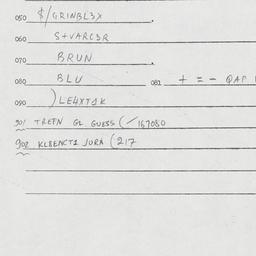 050 $/GRINBL3X.
060 S+VARC3R
070 BRUN.
080 BLU 081 + = - QAP
090 )LE4XT1K
901 TREFN GL GUESS (/167080
902 KLBENCT1 JURA (217